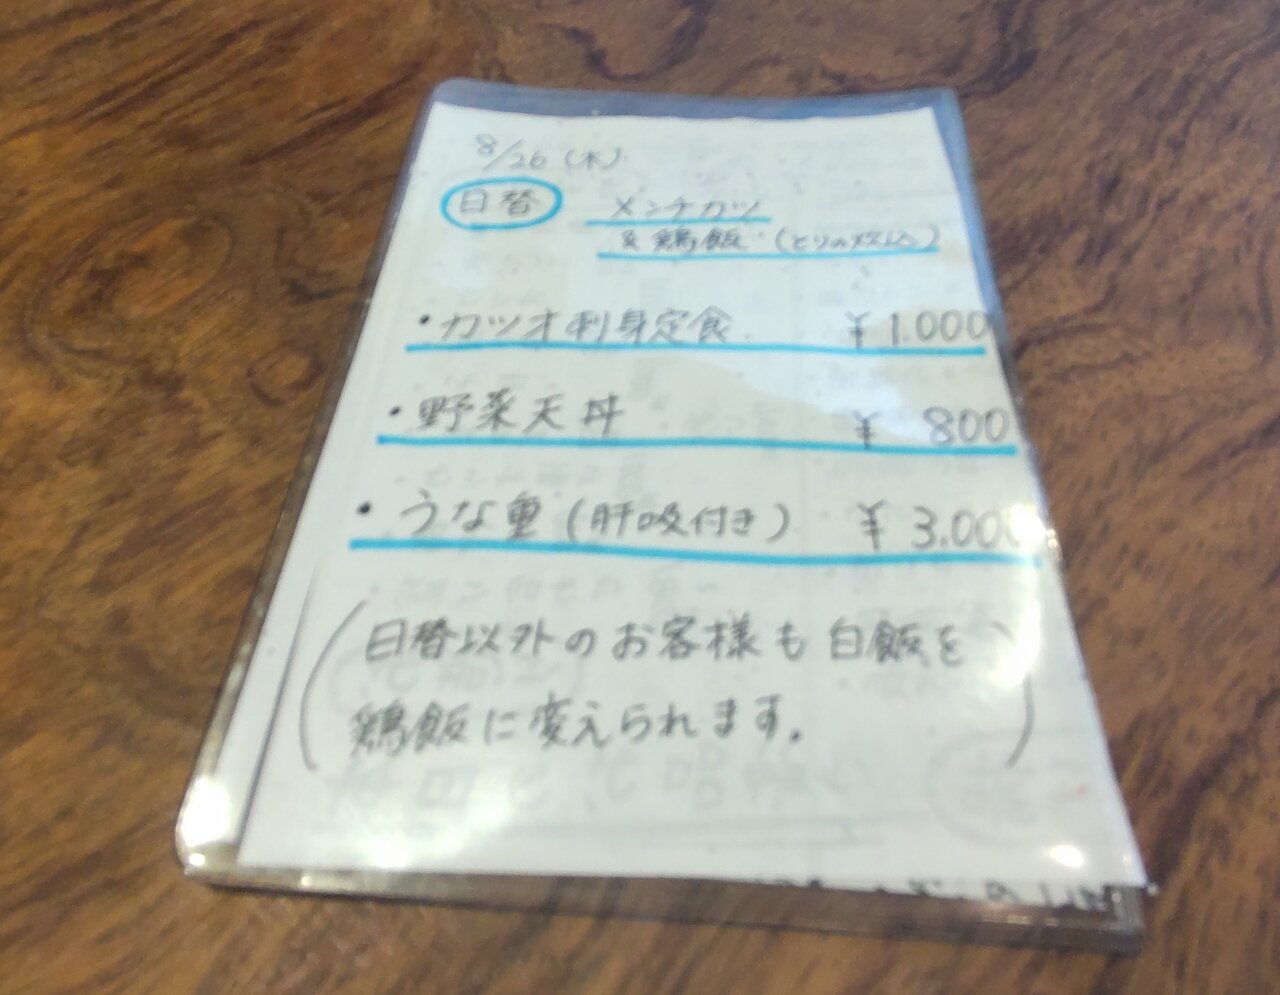 8/26 (木)
日替 メンチカツ
& 鶏飯 (とりの炊込)
・カツオ刺身定食 ¥1.000
・野菜天丼 ¥ 800
・うな重 (肝吸付き) ¥ 3.000
(日替以外のお客様も白飯を
鶏飯に変えられます。)